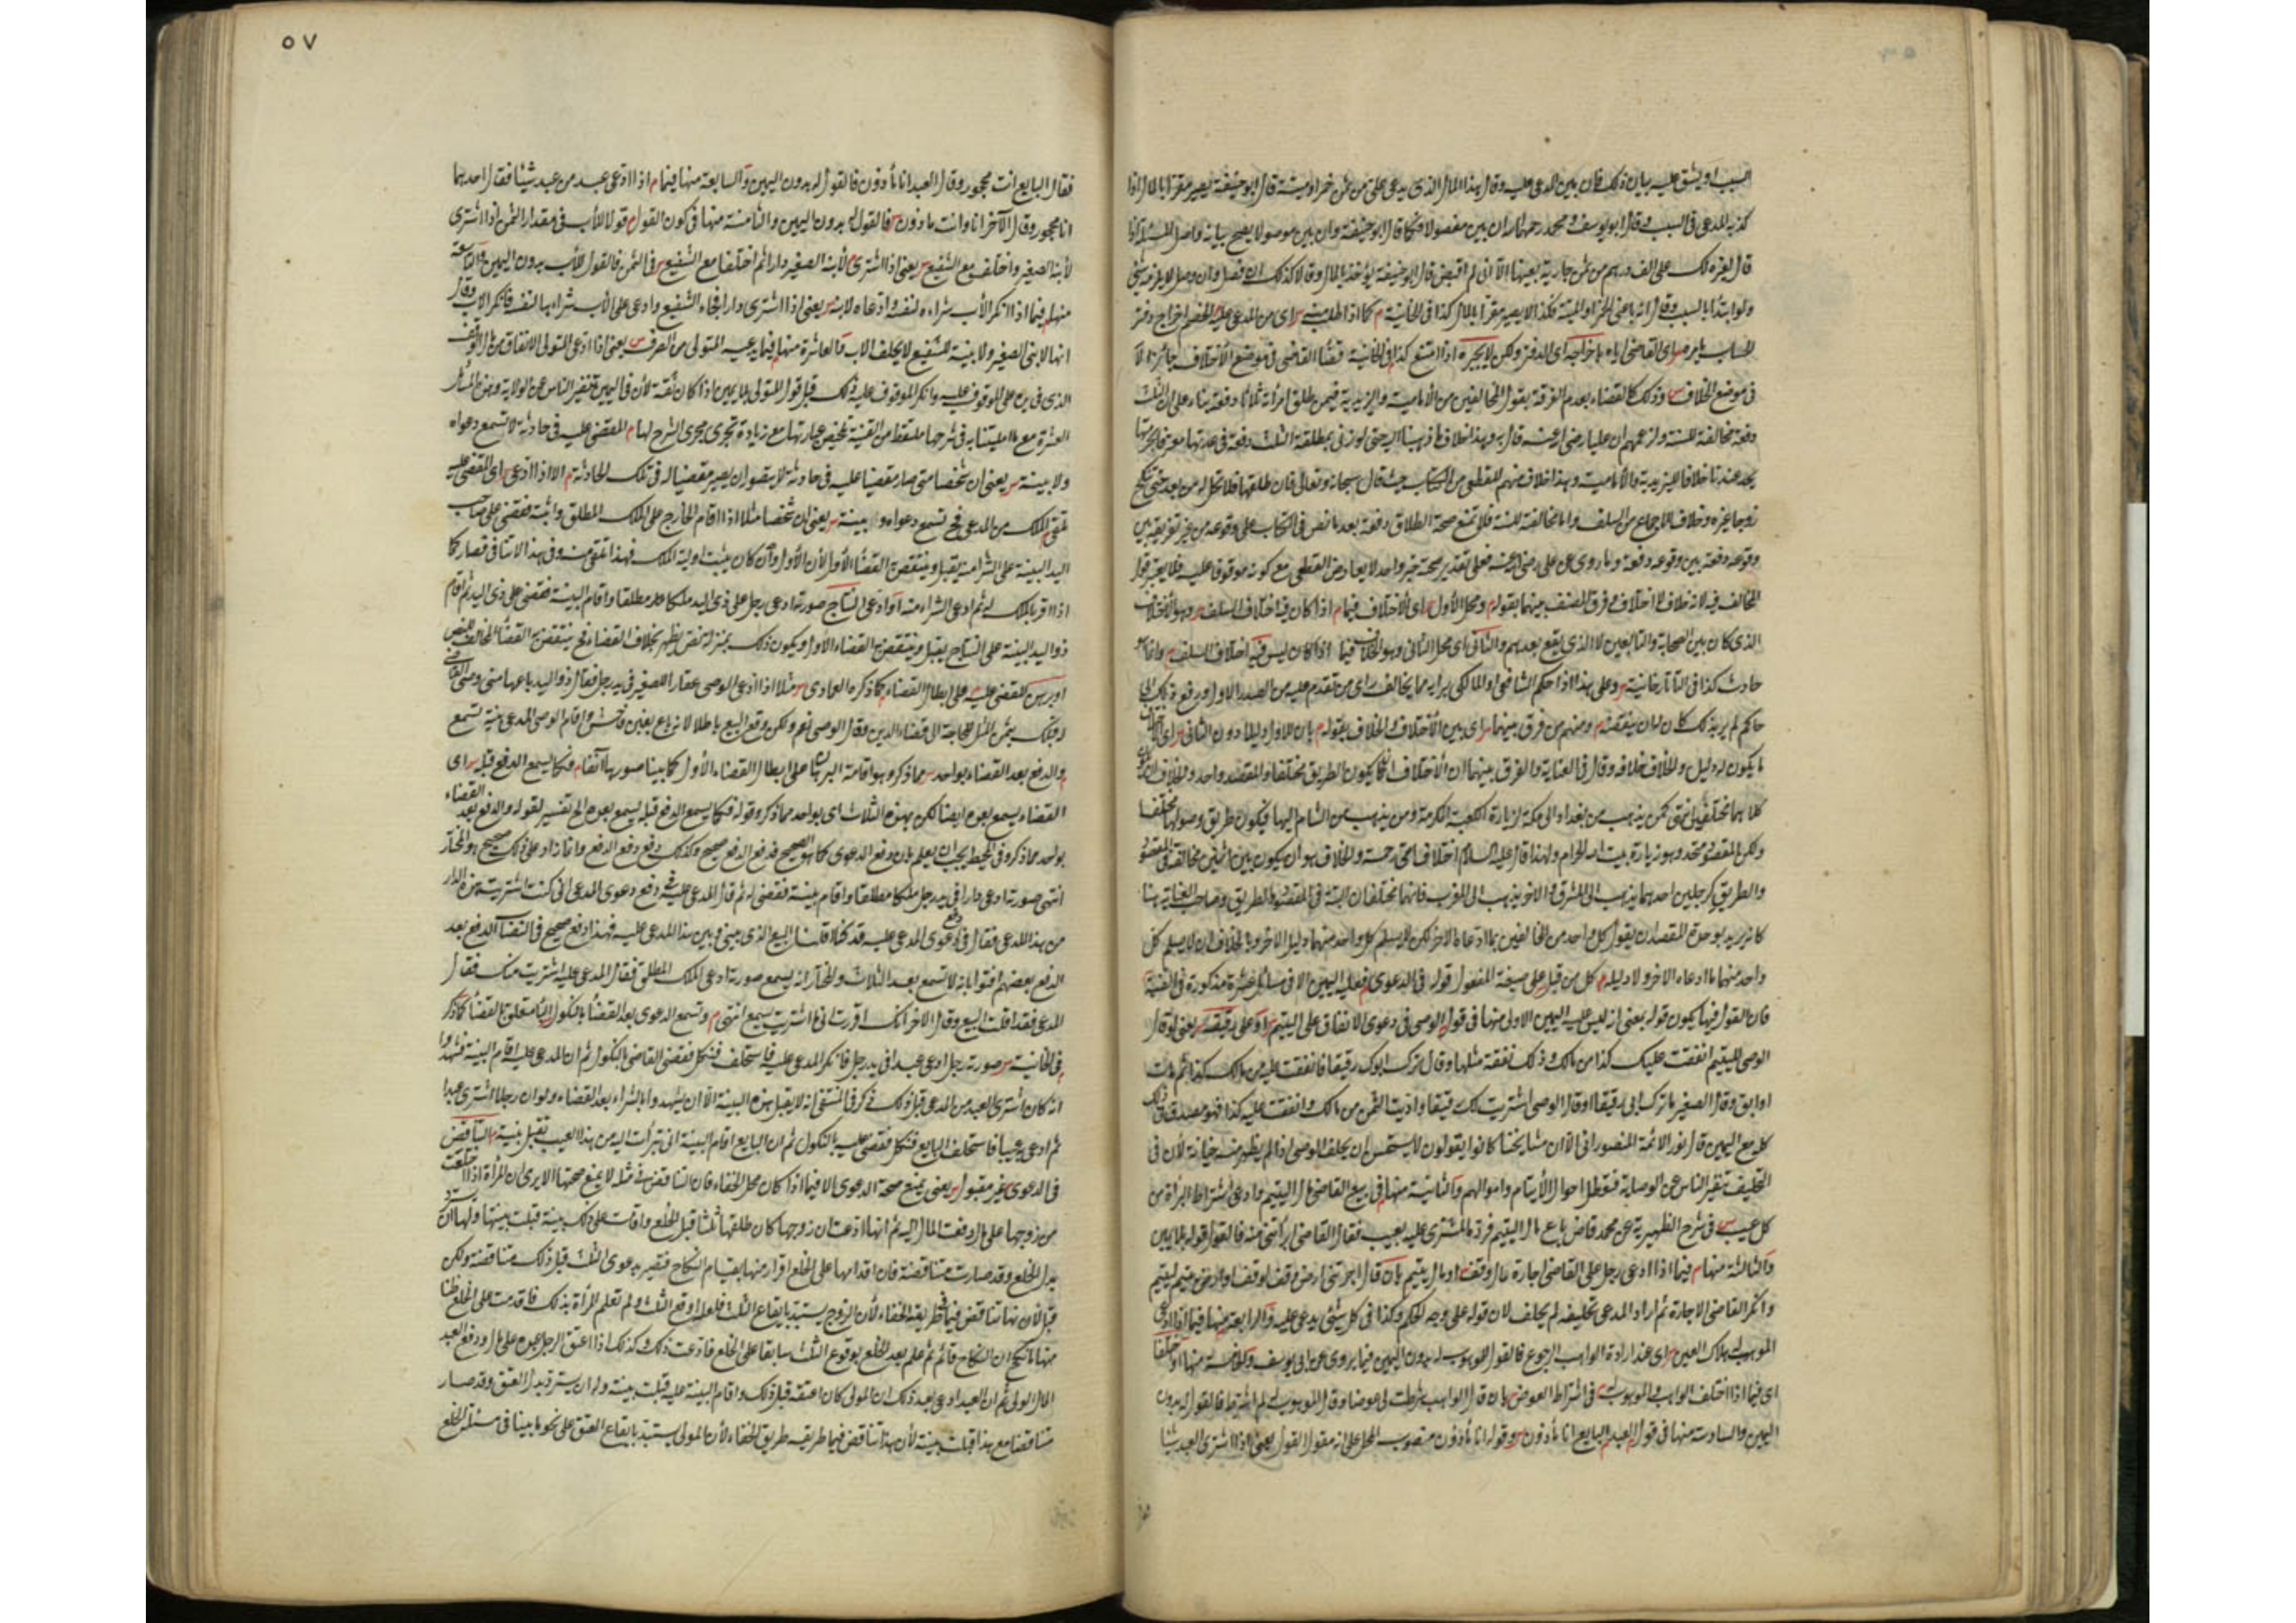 السبب او يشق عليه بيان ذلك فان بين المدعى عليه وقال هذا المال الذى يدعى على من ثمن خمر او ميتة قال ابو حنيفة يصير مقرا بالمال اذا
كذبه المدعى فى السبب وقال ابو يوسف ومحمد رحمهما الله ان بين مفصولا فكما قال ابو حنيفة وان بين موصولا يصح بيانه واصل المسئلة اذا
قال لغيره لك على الف درهم من ثمن جارية بعينها الا انى لم اقبض قال ابو حنيفة يؤخذ بالمال وقالا كذلك ان فصل وان وصل لا يلزمه شئ
ولو ابتدأ بالسبب وقال اشتريت منى الخمر او الميتة فكذا لا يصير مقرا بالمال كذا فى الخانية م كما اذا طلب س اى من المدعى عليه الخصم اخراج دفتر
الحساب يأمره س اى القاضى اياه باخراجه اى الدفتر ولكن لا يجبره اذا امتنع كذا فى الخانية قضاء القاضى فى موضع الاختلاف جائز لا
فى موضع الخلاف س وذلك كالقضاء بعدم الفرقة بقول المخالفين من الامامية والزيدية فيمن طلق امرأته ثلاثا دفعة بناء على ان الثلث
دفعة مخالفة للسنة وزعمهم ان عليا رضى الله عنه قال به وهذا خلاف مذهبنا حتى لو زنى بمطلقة الثلث دفعة فى عدتها مع علمه بحرمتها
يحد عندنا خلافا للزيدية والامامية وهذا خلاف منهم للقطعى من الكتاب حيث قال سبحانه وتعالى فان طلقها فلا تحل له من بعد حتى تنكح
زوجا غيره وخلاف للاجماع من السلف واما مخالفة السنة فلا تمنع صحة الطلاق دفعة بعد ما نص فى الكتاب على وقوعه من غير تفرقة بين
وقوعه دفعة بين وقوعه دفعة وما روى عن على رضى الله عنه فعلى تقدير صحته خبر واحد لا يعارض القطعى مع كونه موقوفا عليه فلا يعتبر قول
المخالف فيه لانه خلاف لا اختلاف وفرق المصنف بينهما بقوله م ومحل الاول س اى الاختلاف فيما م اذا كان فيه اختلاف السلف س وهو الاختلاف
الذى كان بين الصحابة والتابعين لا الذى يقع بعدهم والثانى اى محل الثانى وهو الخلاف فيما اذا كان ليس فيه اختلاف السلف م وانما هو
حادث كذا فى التاتارخانية س وعلى هذا اذا حكم الشافعى او المالكى برأيه مما يخالف رأى من تقدم عليه من الصدر الاول ورفع ذلك الى
حاكم لم ير ذلك كان له ان ينقضه م ومنهم من فرق بينهما س اى بين الاختلاف والخلاف بقوله م بان للاول دليلا دون الثانى س اى الاختلاف
ما يكون له دليل والخلاف خلافه وقال فى العناية والفرق بينهما ان الاختلاف انما يكون الطريق مختلفا والمقصد واحد والخلاف ان يكون
كلاهما مختلفين كمن يذهب من بغداد الى مكة لزيارة الكعبة المكرمة ومن يذهب من الشام اليها فيكون طريق وصولهما مختلفا
ولكن المقصود متحد وهو زيارة بيت الله الحرام ولهذا قال عليه السلام اختلاف امتى رحمة والخلاف هو ان يكون بين اثنين مخالفة فى المقصود
والطريق كرجلين احدهما يذهب الى المشرق والاخر يذهب الى المغرب فانهما مختلفان البتة فى المقصود والطريق وصاحب العناية هنا
كانه يريد بوحدة المقصد ان يقول كل واحد من المخالفين بما ادعاه الاخر لكن لا يسلم كل واحد منهما دليل الاخر وبالخلاف ان لا يسلم كل
واحد منهما ما ادعاه الاخر ولا دليله م كل من قبل على صيغة المفعول قوله فى الدعوى م فعليه اليمين الا فى مسائل عشرة مذكورة فى القنية
فان القول فيها يكون قوله يعنى انه ليس عليه اليمين الاولى منها فى قول الوصى فى دعوى الانفاق على اليتيم س او على رقيقه س يعنى لو قال
الوصى لليتيم انفقت عليك كذا من مالك وذلك نفقة مثلها وقال ترك ابوك رقيقا فانفقت عليه من مالك كذا ثم مات
او ابق وقال الصغير ما ترك ابى رقيقا او قال الوصى اشتريت لك رقيقا واديت الثمن من مالك وانفقت عليه كذا فهو مصدق فى ذلك
كله مع اليمين قال نور الائمة المنصورانى الا ان مشايخنا كانوا يقولون لا يستحسن ان يحلف الوصى اذا لم يظهر منه خيانة لان فى
التحليف تنفير الناس عن الوصاية فتوطل احوال الايتام واموالهم والثانية منها م فى بيع القاضى مال اليتيم وادعى اشتراط البراءة من
كل عيب س فى شرح الظهيرية عن محمد قاض باع مال اليتيم فرده المشترى عليه بعيب فقال القاضى ابرأتنى منه فالقول قوله بلا يمين
والثالثة منها م فيما اذا ادعى رجل على القاضى اجارة مال وقف او مال يتيم بان قال اجرتنى ارض وقف لوقف او ارض يتيم ليتيم
وانكر القاضى الاجارة ثم اراد المدعى تحليفه لم يحلف لان قوله على وجه الحكم وكذا فى كل شئ يدعى عليه والرابعة منها فيما اذا ادعى
الموهوب له هلاك العين س اى عند ارادة الواهب الرجوع فالقول للموهوب له بدون اليمين فيما يروى عن ابى يوسف والخامسة منها او اختلفا
اى فيما اذا اختلف الواهب والموهوب له فى اشتراط العوض س بان قال الواهب شرطت لى عوضا وقال الموهوب له لم اشترط فالقول له بدون
اليمين والسادسة منها فى قول العبد م للبايع انا مأذون س وقوله انا مأذون منصوب المحل على انه مقول القول يعنى اذا اشترى العبد شيئا
٥٧
فقال البايع انت محجور وقال العبد انا مأذون فالقول له بدون اليمين والسابعة منها فيما م اذا ادعى عبد من عبد شيئا فقال احدهما
انا محجور وقال الآخر انا وانت مأذون س فالقول له بدون اليمين والثامنة منها فى كون القول م قول الأب فى مقدار الثمن اذا اشترى
لأبنه الصغير واختلف مع الشفيع س يعنى اذا اشترى م لأبنه الصغير دارا ثم اختلفا مع الشفيع س فى الثمن فالقول للأب بدون اليمين والتاسعة
منها م فيما اذا انكر الأب شراءه لنفسه وادعاه لابنه س يعنى اذا اشترى دارا فجاء الشفيع وادعى على الأب شراءها لنفسه فانكر الاب وقال
انها لابنى الصغير ولا بينة للشفيع لا يحلف الاب والعاشرة منها فيما يدعيه المتولى من الصرف س يعنى اذا ادعى المتولى الانفاق من مال الوقف
الذى فى يده على الموقوف عليه وانكر الموقوف عليه ذلك قبل قول المتولى بلا يمين اذا كان ثقة لأن فى اليمين تنفير الناس عن الولاية وهذه المسائل
العشرة مع ما امليتنا به فى شرحها ملتقط من القنية بتلخيص عبارتها مع زيادة تجرى مجرى الشرح لها م المقضى عليه فى حادثة لا تسمع دعواه
ولا بينته س يعنى ان شخصا متى صار مقضيا عليه فى حادثة لا يتصور ان يصير مقضيا له فى تلك الحادثة م الا اذا ادعى س اى المقضى عليه
تلقى الملك من المدعى فح تسمع دعواه وبينته س يعنى ان شخصا مثلا اذا اقام الخارج على الملك المطلق واثبته فقضى على صاحب
اليد البينة على الشراء منه يقبل وينتقض القضاء الأول لأن الأول وان كان يثبت اولية الملك فهذا تلقى منه وفى هذا لا تنافى فصار كما
اذا اقر بالملك له ثم ادعى الشراء منه او ادعى النتاج صورته ادعى رجل على ذى اليد ملكا مطلقا واقام البينة فقضى على ذى اليد ثم اقام
ذو اليد البينة على النتاج يقبل وينتقض به القضاء الاول ويكون ذلك بمنزلة نص يظهر بخلاف القضاء فح ينتقض به القضاء المخالف للنص
او برهن المقضى عليه على ابطال القضاء م كما ذكره العمادى س مثلا اذا ادعى الوصى عقار الصغير فى يد رجل فقال ذو اليد باعها منى وصى القاضى
لاجلك بثمن المثل للحاجة الى قضاء الدين وقال الوصى نعم ولكن وقع البيع باطلا لانه باع بغبن فاحش واقام الوصى المدعى بينة تسمع
م والدفع بعد القضاء بواحد س مما ذكر وهو اقامة البرهان على ابطال القضاء الأول كما بينا صورتها آنفا م فكما يسمع الدفع قبله س اى
القضاء يسمع بعده ايضا لكن بهذه الثلاث اى بواحد مما ذكر وقوله فكما يسمع الدفع قبله يسمع بعده الخ تفسير لقوله والدفع بعد القضاء
بواحد مما ذكر وفى المحيط يجب ان يعلم بان دفع الدعوى كما هو الصحيح فدفع الدفع صحيح وكذلك دفع دفع الدفع وما زاد على ذلك صحيح هو المختار
انتهى صورته ادعى دارا فى يد رجل ملكا مطلقا واقام بينة فقضى له ثم قال المدعى عليه فى دفع دعوى المدعى انى كنت اشتريت هذه الدار
من هذا المدعى فقال فى دفع دعوى المدعى عليه قد كنا اقلنا البيع الذى بينى وبين هذا المدعى عليه فهذا دفع صحيح الدفع بعد
الدفع بعضهم افتوا بانه لا تسمع بعد الثلاث والمختار انه يسمع صورته ادعى الملك المطلق فقال المدعى عليه اشتريت منك فقال
المدعى فقد اقلت البيع وقال الاخر انك اقررت انى ما اشتريت يسمع انتهى م وتسمع الدعوى بعد القضاء بالنكول س الباء متعلق بالقضاء كما ذكر
م فى الخانية س صورته رجل ادعى عبدا فى يد رجل فانكر المدعى عليه فاستحلف فنكل فقضى القاضى بالنكول ثم ان المدعى عليه اقام البينة فشهدوا
انه كان اشترى العبد من المدعى قبل ذلك ذكر فى المنتقى انه لا يقبل هذه البينة الا ان يشهدوا بالشراء بعد القضاء ولو ان رجلا اشترى عبدا
ثم ادعى به عيبا فاستحلف البايع فنكل فقضى عليه بالنكول ثم ان البايع اقام البينة انى تبرأت اليه من هذا العيب تقبل بينته م التناقض
فى الدعوى غير مقبول س يعنى يمنع صحة الدعوى الا فيما اذا كان محل الخفاء فان التناقض فى مثله لا يمنع صحتها الا يرى ان المرأة اذا اختلعت
من زوجها على مال ودفعت المال اليه ثم انها ادعت ان زوجها كان طلقها ثلثا قبل الخلع واقامت على ذلك بينة قبلت بينتها ولها ان تسترد
بدل الخلع وقد صارت متناقضة فان اقدامها على الخلع اقرار منها بقيام النكاح فتصير بدعوى الثلث قبل ذلك متناقضة ولكن
قبل لأن هذا تناقض فيما طريقه الخفاء لأن الزوج يستبد بايقاع الثلث فلعله اوقع الثلث ولم تعلم المرأة بذلك فاقدمت على الخلع ظنا
منها ان النكاح قائم ثم علم بعد الخلع بوقوع الثلث سابقا على الخلع فادعت ذلك وكذلك اذا اعتق الرجل عبده على مال ودفع العبد
المال للمولى ثم ان العبد ادعى بعد ذلك ان المولى كان اعتقه قبل ذلك واقام البينة عليه قبلت بينته وله ان يسترد بدل العتق وقد صار
متناقضا مع هذا قبلت بينته لأن هذا تناقض فيما طريقه طريق الخفاء لأن المولى يستبد بايقاع العتق على نحو ما بينا فى مسئلة الخلع